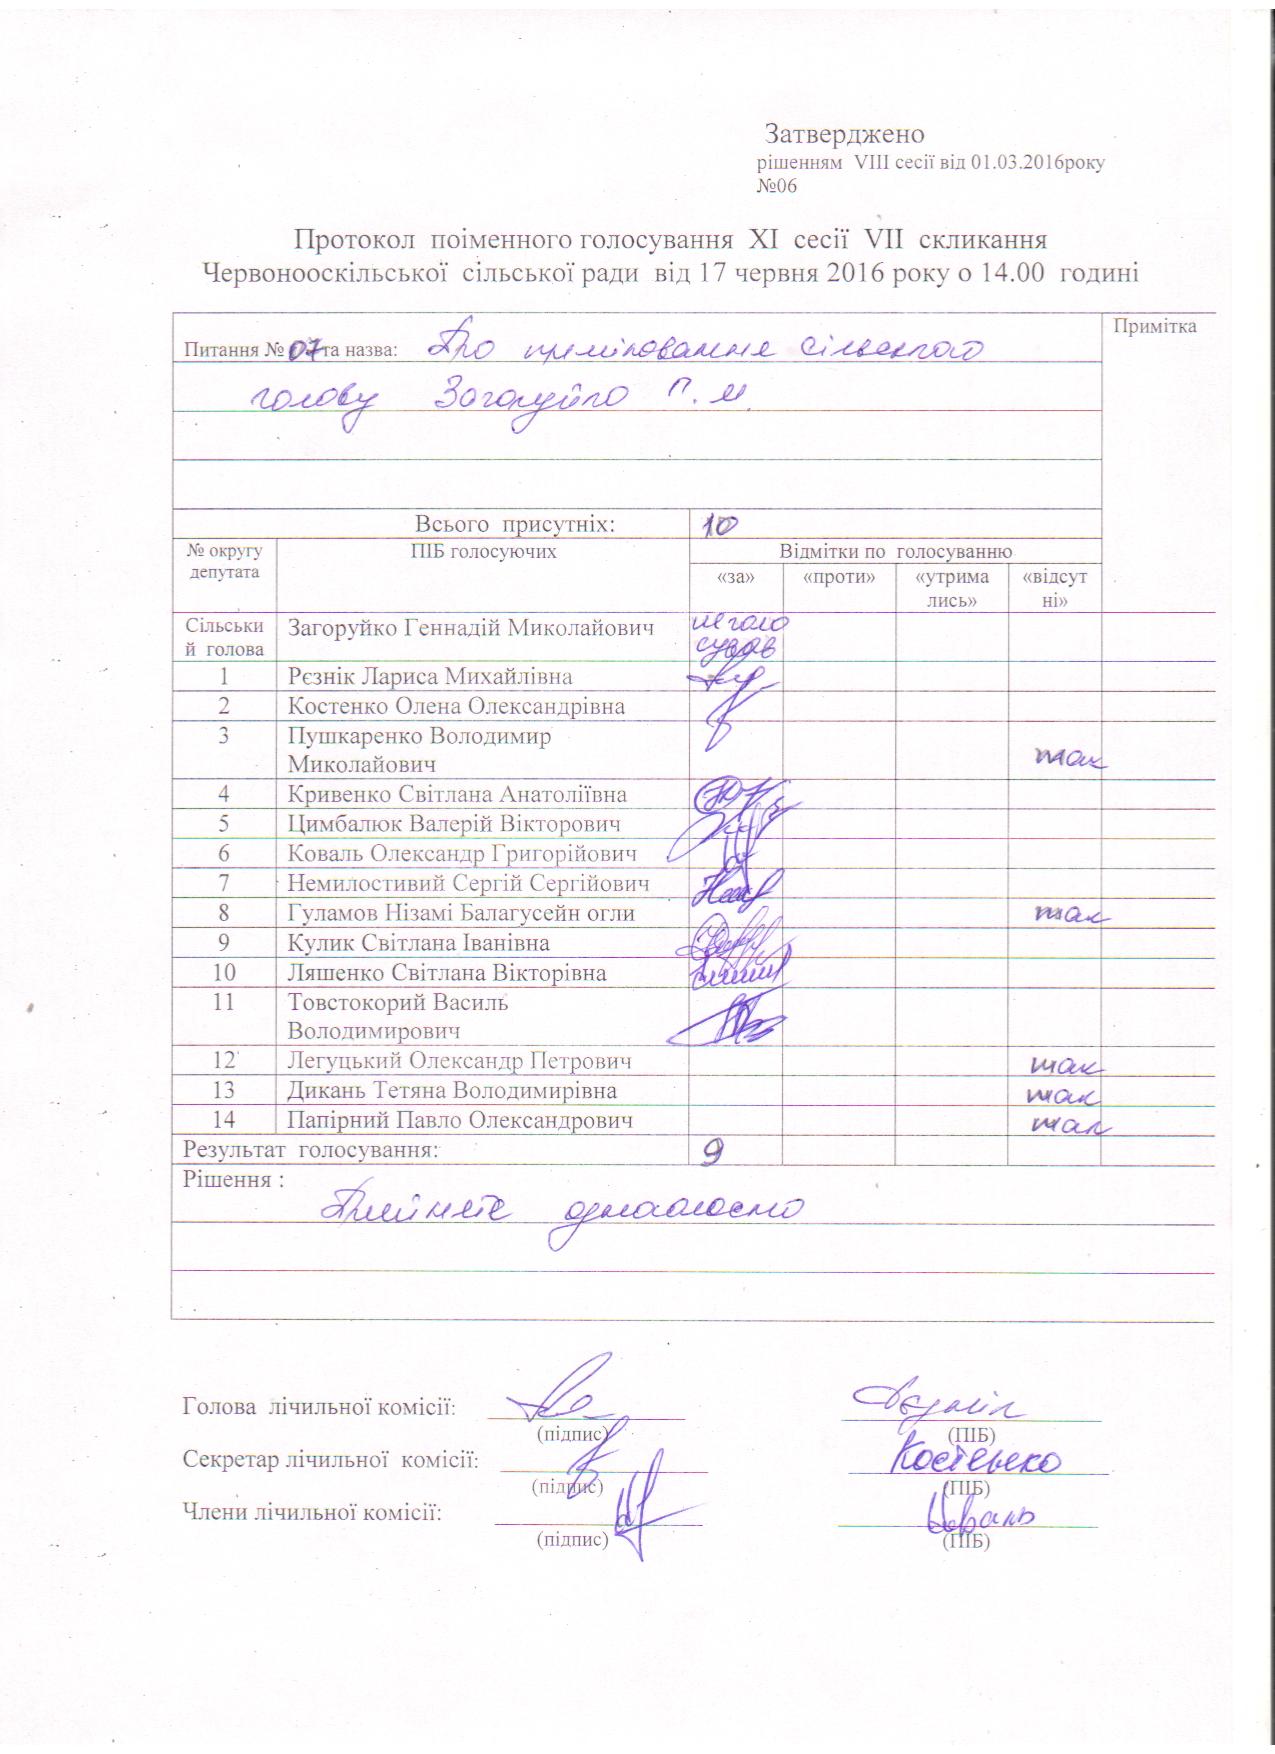 Затверджено
рішенням VIII сесії від 01.03.2016року
№06
Протокол поіменного голосування XI сесії VII скликання
Червонооскільської сільської ради від 17 червня 2016 року о 14.00 годині
Питання № 07 та назва: Про преміювання сільського
голову Загоруйко Г. М.
Примітка
Всього присутніх: 10
№ округу депутата ПІБ голосуючих Відмітки по голосуванню
«за» «проти» «утрима лись» «відсут ні»
Сільськи й голова Загоруйко Геннадій Миколайович не голо сував
1 Рєзнік Лариса Михайлівна
2 Костенко Олена Олександрівна
3 Пушкаренко Володимир
Миколайович так
4 Кривенко Світлана Анатоліївна
5 Цимбалюк Валерій Вікторович
6 Коваль Олександр Григорійович
7 Немилостивий Сергій Сергійович
8 Гуламов Нізамі Балагусейн огли так
9 Кулик Світлана Іванівна
10 Ляшенко Світлана Вікторівна
11 Товстокорий Василь
Володимирович
12 Легуцький Олександр Петрович так
13 Дикань Тетяна Володимирівна так
14 Папірний Павло Олександрович так
Результат голосування: 9
Рішення :
Прийнято одноголосно
Голова лічильної комісії: Рєзнік
(підпис) (ПІБ)
Секретар лічильної комісії: Костенко
(підпис) (ПІБ)
Члени лічильної комісії: Коваль
(підпис) (ПІБ)